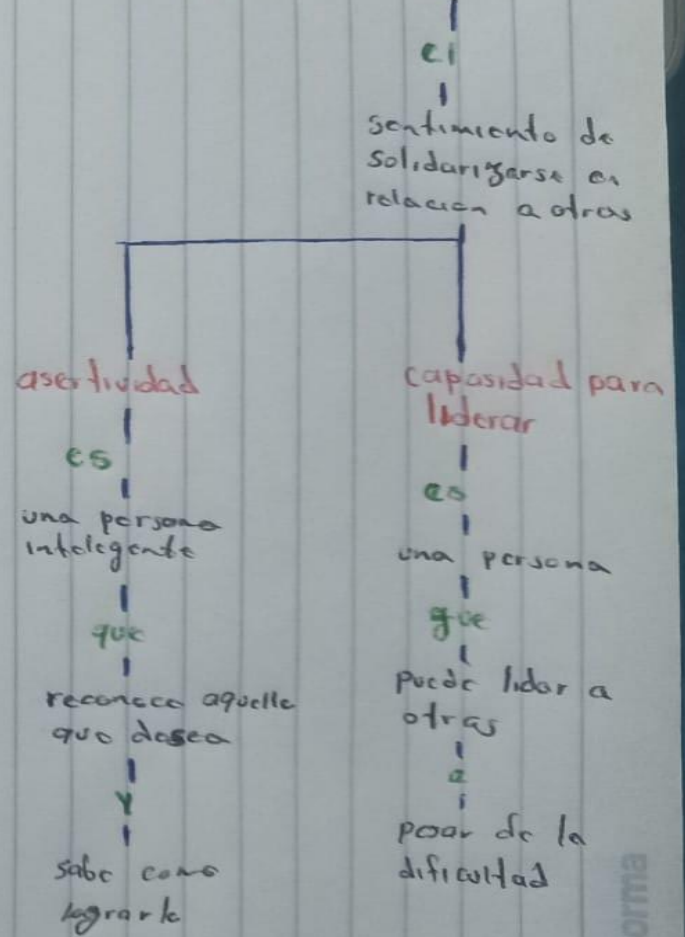 el
sentimiento de
solidarizarse en
relación a otros
asertividad
es
una persona
intelegente
que
reconoce aquello
que desea
y
sabe como
lograrlo
capasidad para
liderar
es
una persona
que
puede lidar a
otras
a
pesar de la
dificultad
orma